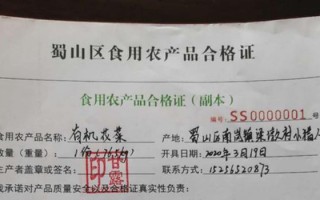 蜀山区食用农产品合格证
食用农产品合格证（副本）
编号：SS0000001 台
食用农产品名称：有机衣菜 产地：蜀山区南岗镇
数量（重量）：1份 开具日期：2020年3月19日
生产者盖章或签名： 联系方式：15256520873
我承诺对产品质量安全以及合格证真实性负责：
甘露
印